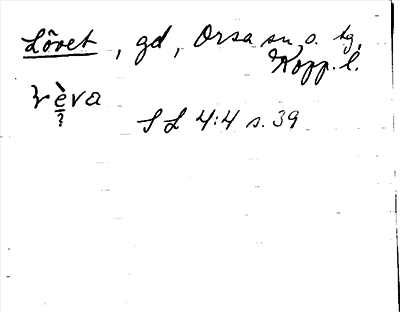 Lövet, gd, Orsa sn, o. tg,
Kopp. l.
rèva
?
SL 4:4 s. 39